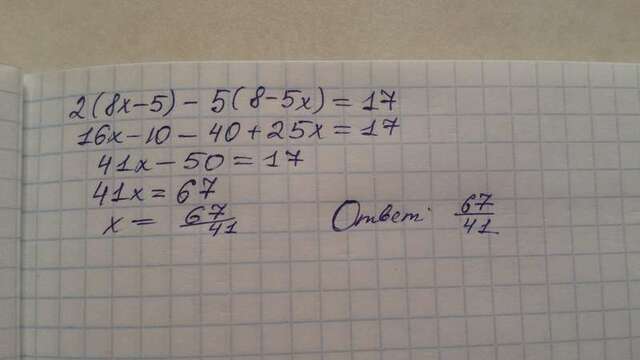 2(8x-5)-5(8-5x)=17
16x-10-40+25x=17
41x-50=17
41x=67
x= 67/41 Ответ: 67/41